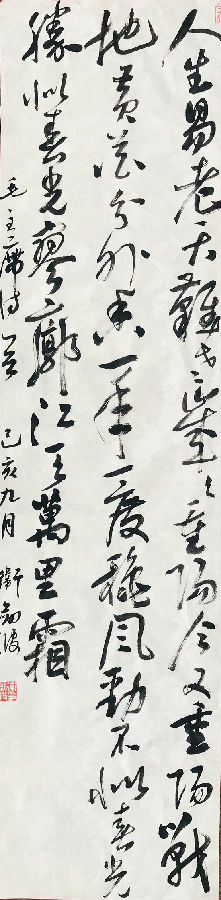 人生易老天難老歲々重陽今又重陽戰
地黄花分外香一年一度秋風勁不似春光
勝似春光寥廓江天萬里霜
毛主席詩一首 己亥九月